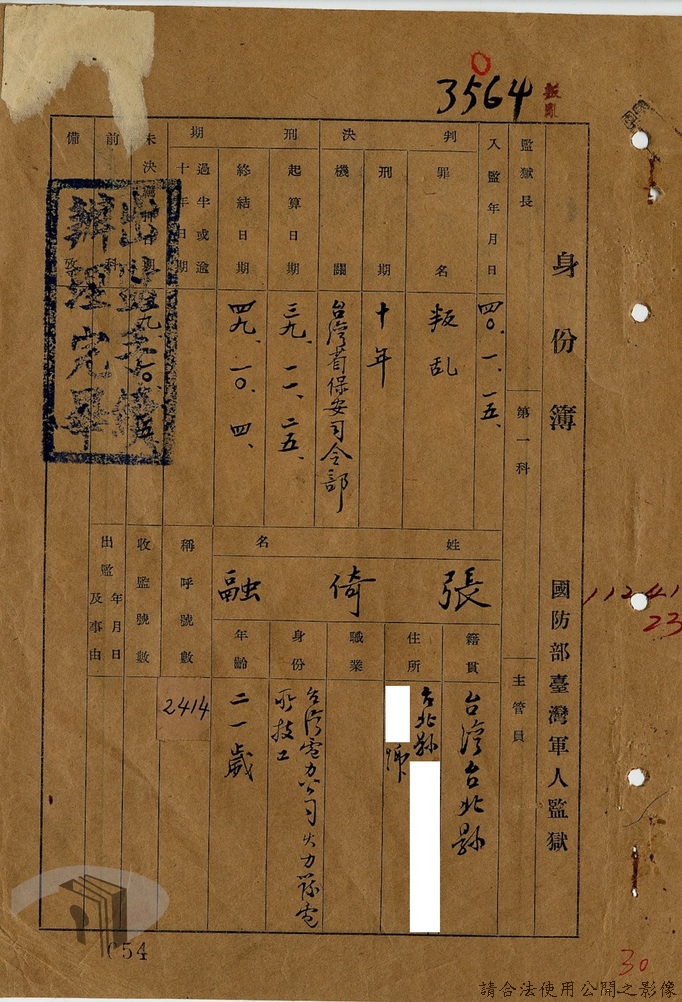 3564
叛亂
身份簿
國防部臺灣軍人監獄
11241
23
監獄長
第一科
主管員
入監年月日
四〇、一、一五、
判決
罪名
叛乱
刑期
十年
機關
台湾省保安司令部
刑期
起算日期
三九、一一、二五、
終結日期
四九、一〇、四、
過半或逾十年日期
未決
前科
備攷
辦理完畢
姓名
張倚融
籍貫
台湾台北縣
住所
台北縣
號
職業
身份
台湾電力公司火力發電所技工
年齡
二一歲
稱呼號數
2414
收監號數
出監年月日及事由
54
30
請合法使用公開之影像